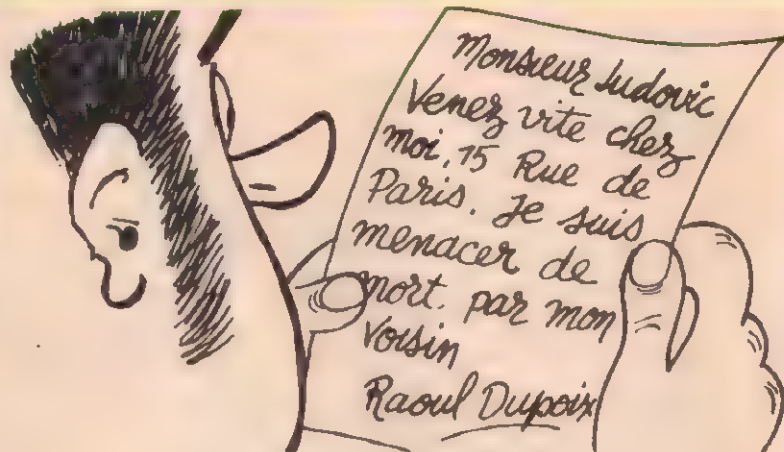 Monsieur Ludovic
Venez vite chez
moi, 15 Rue de
Paris. Je suis
menacer de
mort. par mon
Voisin
Raoul Dupoix